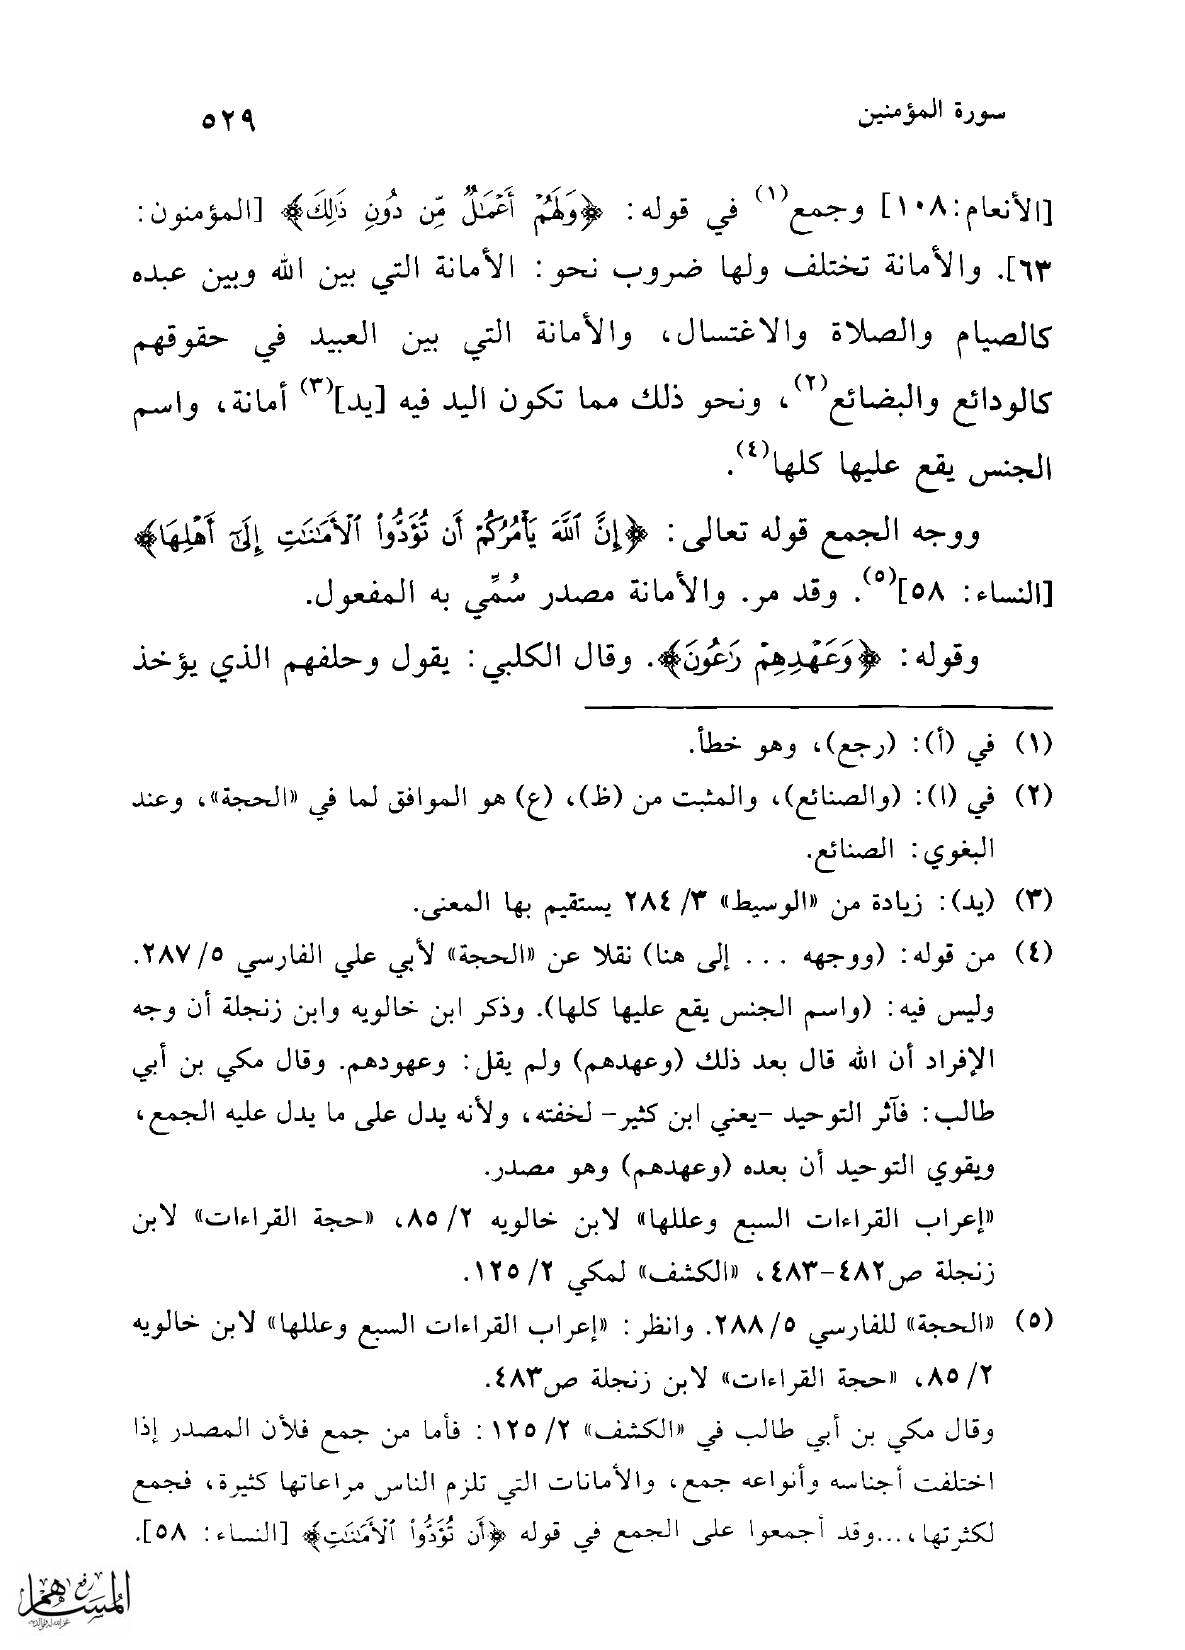 سورة المؤمنين
٥٢٩
[الأنعام:١٠٨] وجمع(١) في قوله: ﴿وَلَهُمْ أَعْمَـٰلٌ مِّن دُونِ ذَٰلِكَ﴾ [المؤمنون:
٦٣]. والأمانة تختلف ولها ضروب نحو: الأمانة التي بين الله وبين عبده
كالصيام والصلاة والاغتسال، والأمانة التي بين العبيد في حقوقهم
كالودائع والبضائع(٢)، ونحو ذلك مما تكون اليد فيه [يد](٣) أمانة، واسم
الجنس يقع عليها كلها(٤).
ووجه الجمع قوله تعالى: ﴿إِنَّ ٱللَّهَ يَأْمُرُكُمْ أَن تُؤَدُّوا۟ ٱلْأَمَـٰنَـٰتِ إِلَىٰٓ أَهْلِهَا﴾
[النساء: ٥٨](٥). وقد مر. والأمانة مصدر سُمِّي به المفعول.
وقوله: ﴿وَعَهْدِهِمْ رَٰعُونَ﴾. وقال الكلبي: يقول وحلفهم الذي يؤخذ
(١) في (أ): (رجع)، وهو خطأ.
(٢) في (ا): (والصنائع)، والمثبت من (ظ)، (ع) هو الموافق لما في «الحجة»، وعند
البغوي: الصنائع.
(٣) (يد): زيادة من «الوسيط» ٣/ ٢٨٤ يستقيم بها المعنى.
(٤) من قوله: (ووجهه ... إلى هنا) نقلا عن «الحجة» لأبي علي الفارسي ٥/ ٢٨٧.
وليس فيه: (واسم الجنس يقع عليها كلها). وذكر ابن خالويه وابن زنجلة أن وجه
الإفراد أن الله قال بعد ذلك (وعهدهم) ولم يقل: وعهودهم. وقال مكي بن أبي
طالب: فآثر التوحيد -يعني ابن كثير- لخفته، ولأنه يدل على ما يدل عليه الجمع،
ويقوي التوحيد أن بعده (وعهدهم) وهو مصدر.
«إعراب القراءات السبع وعللها» لابن خالويه ٢/ ٨٥، «حجة القراءات» لابن
زنجلة ص٤٨٢-٤٨٣، «الكشف» لمكي ٢/ ١٢٥.
(٥) «الحجة» للفارسي ٥/ ٢٨٨. وانظر: «إعراب القراءات السبع وعللها» لابن خالويه
٢/ ٨٥، «حجة القراءات» لابن زنجلة ص٤٨٣.
وقال مكي بن أبي طالب في «الكشف» ٢/ ١٢٥: فأما من جمع فلأن المصدر إذا
اختلفت أجناسه وأنواعه جمع، والأمانات التي تلزم الناس مراعاتها كثيرة، فجمع
لكثرتها،...وقد أجمعوا على الجمع في قوله ﴿أَن تُؤَدُّوا۟ ٱلْأَمَـٰنَـٰتِ﴾ [النساء: ٥٨].